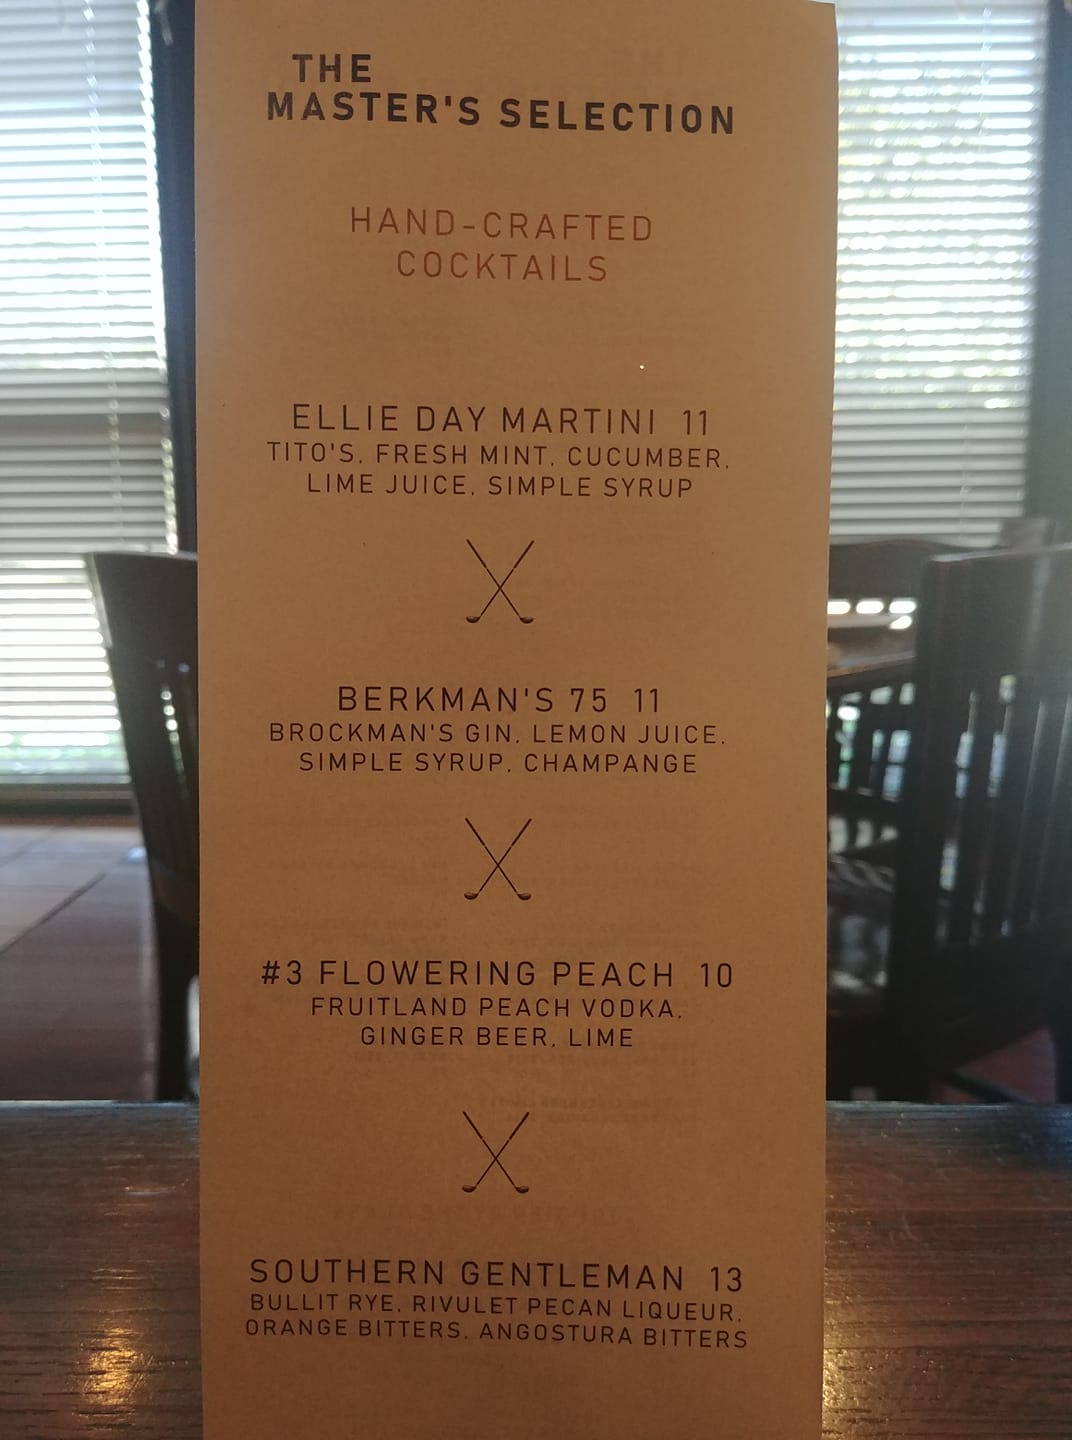 THE
MASTER'S SELECTION
HAND-CRAFTED
COCKTAILS
ELLIE DAY MARTINI 11
TITO'S, FRESH MINT, CUCUMBER,
LIME JUICE, SIMPLE SYRUP
BERKMAN'S 75 11
BROCKMAN'S GIN, LEMON JUICE,
SIMPLE SYRUP, CHAMPANGE
#3 FLOWERING PEACH 10
FRUITLAND PEACH VODKA,
GINGER BEER, LIME
SOUTHERN GENTLEMAN 13
BULLIT RYE, RIVULET PECAN LIQUEUR,
ORANGE BITTERS, ANGOSTURA BITTERS